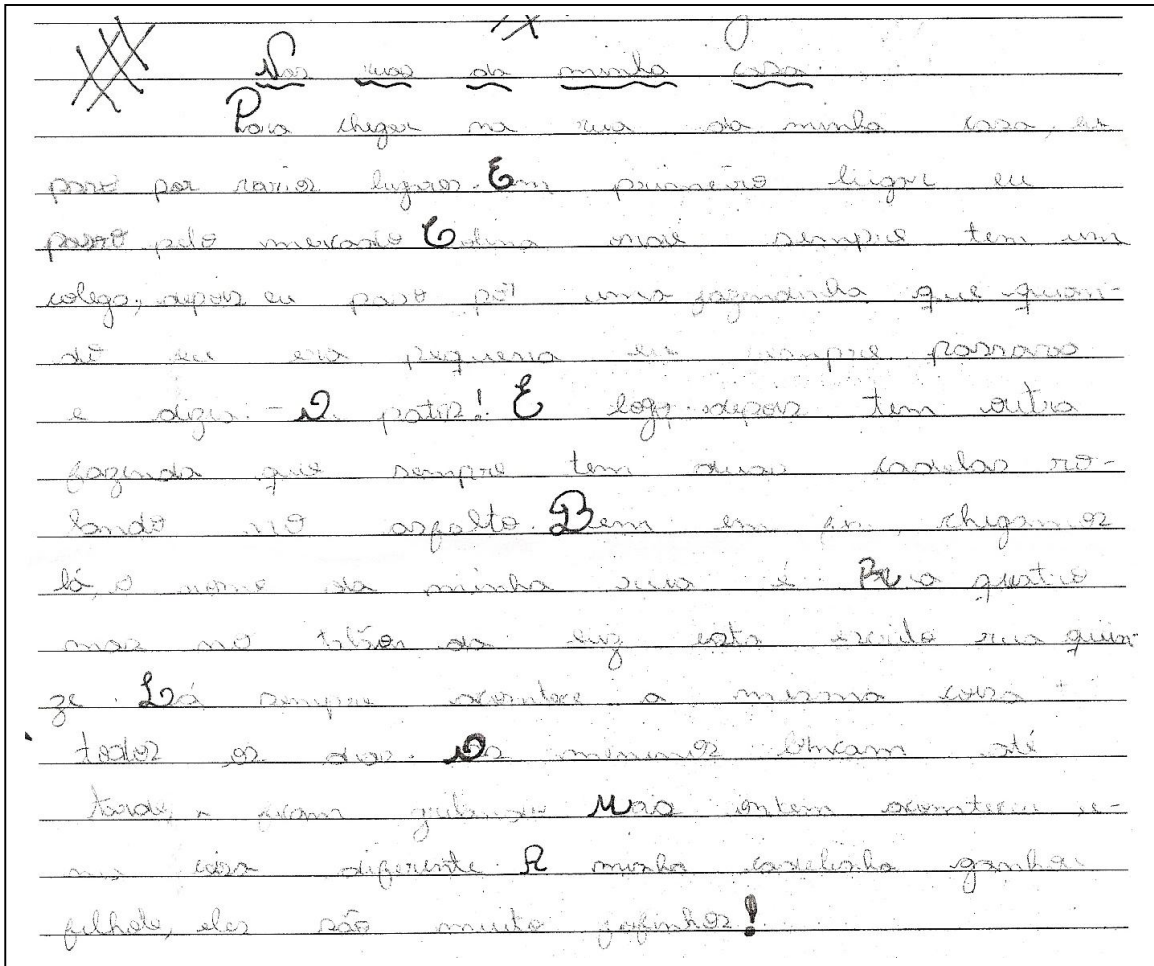 Nas ruas da minha casa.
Para chegar na rua da minha casa, eu
passo por varios lugares. Em primeiro lugar eu
passo pelo mercado Colina onde sempre tem um
colega, depois eu passo por uma fazendinha que quan-
do eu era pequena eu sempre passava
e digia: - O patis! E logo depois tem outra
fazenda que sempre tem duas cadelas ro-
lando no asfalto. Bem em fim, chegamos
lá, o nome da minha rua é Rua quatro
mas no talão da luz esta escrito rua quin-
ze. Lá sempre acontece a mesma coisa
todos os dias. Os meninos brincam até
tarde, e ficam gritando Mas ontem aconteceu u-
ma coisa diferente. A minha cadelinha ganhou
filhote, eles são muito fofinhos!